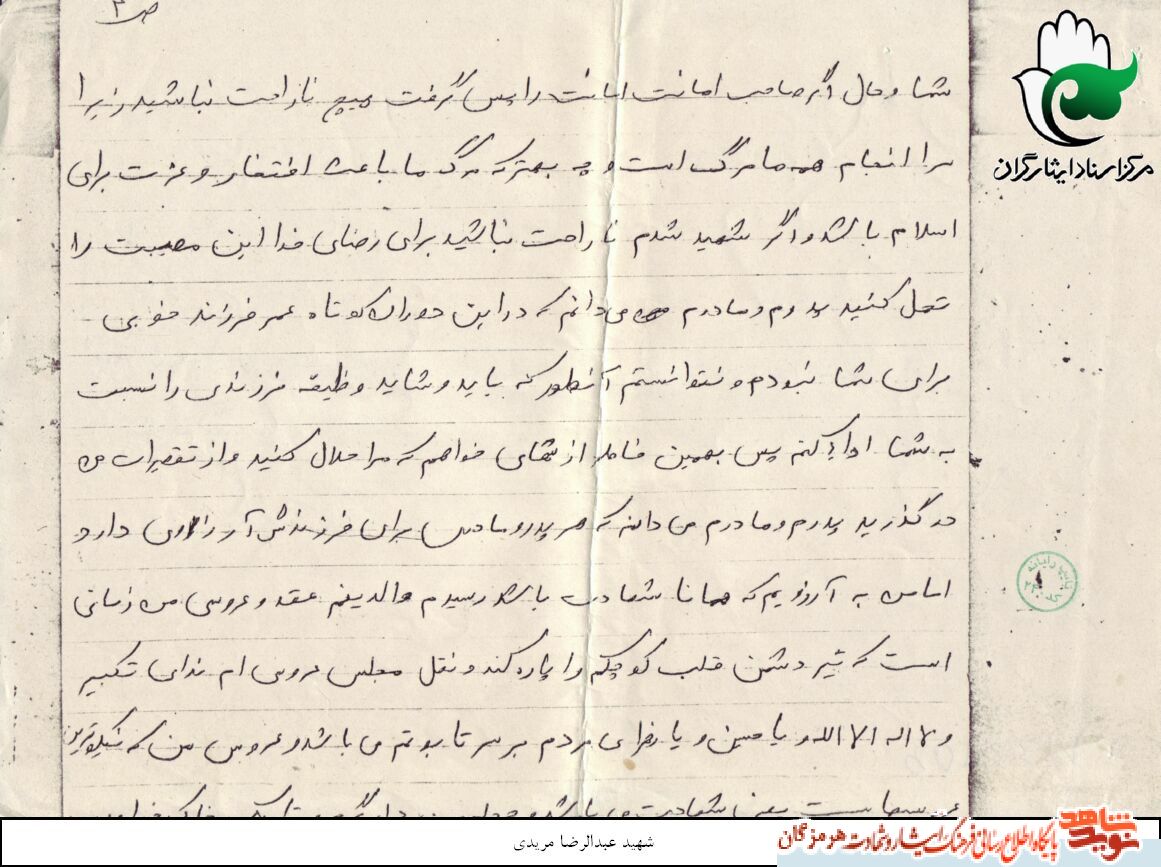 ص ۲
شما و حال اگر صاحب امانت امانت را پس گرفت هیچ ناراحت نباشید زیرا
سرا انجام همه ما مرگ است و چه بهتر که مرگ ما باعث افتخار و عزت برای
اسلام باشد و اگر شهید شدم ناراحت نباشید برای رضای خدا این مصیبت را
تحمل کنید پدرم و مادرم می دانم که در این دوران کوتاه عمر فرزند خوبی
برای شما نبودم و نتوانستم آنطور که باید و شاید وظیفه فرزندی را نسبت
به شما اداء کنم پس بهمین خاطر از شما می خواهم که مرا حلال کنید و از تقصیرات من
در گذرید پدرم و مادرم می دانم که هر پدر و مادری برای فرزندش آرزوی دارد
اما من به آرزویم که همانا شهادت باشد رسیدم والدینم عقد و عروسی من زمانی
است که تیر دشمن قلب کوچکم را پاره کند و نقل مجلس عروسی ام ندای تکبیر
و لا اله الا الله و یا حسین و یا زهرای مردم بر سر تابوتم می باشد و عروس من که نیکوترین
شهادت می باشد
مرکز اسناد ایثارگران
شهید عبدالرضا مریدی
نوید شاهد
پایگاه اطلاع رسانی فرهنگ ایثار و شهادت هرمزگان